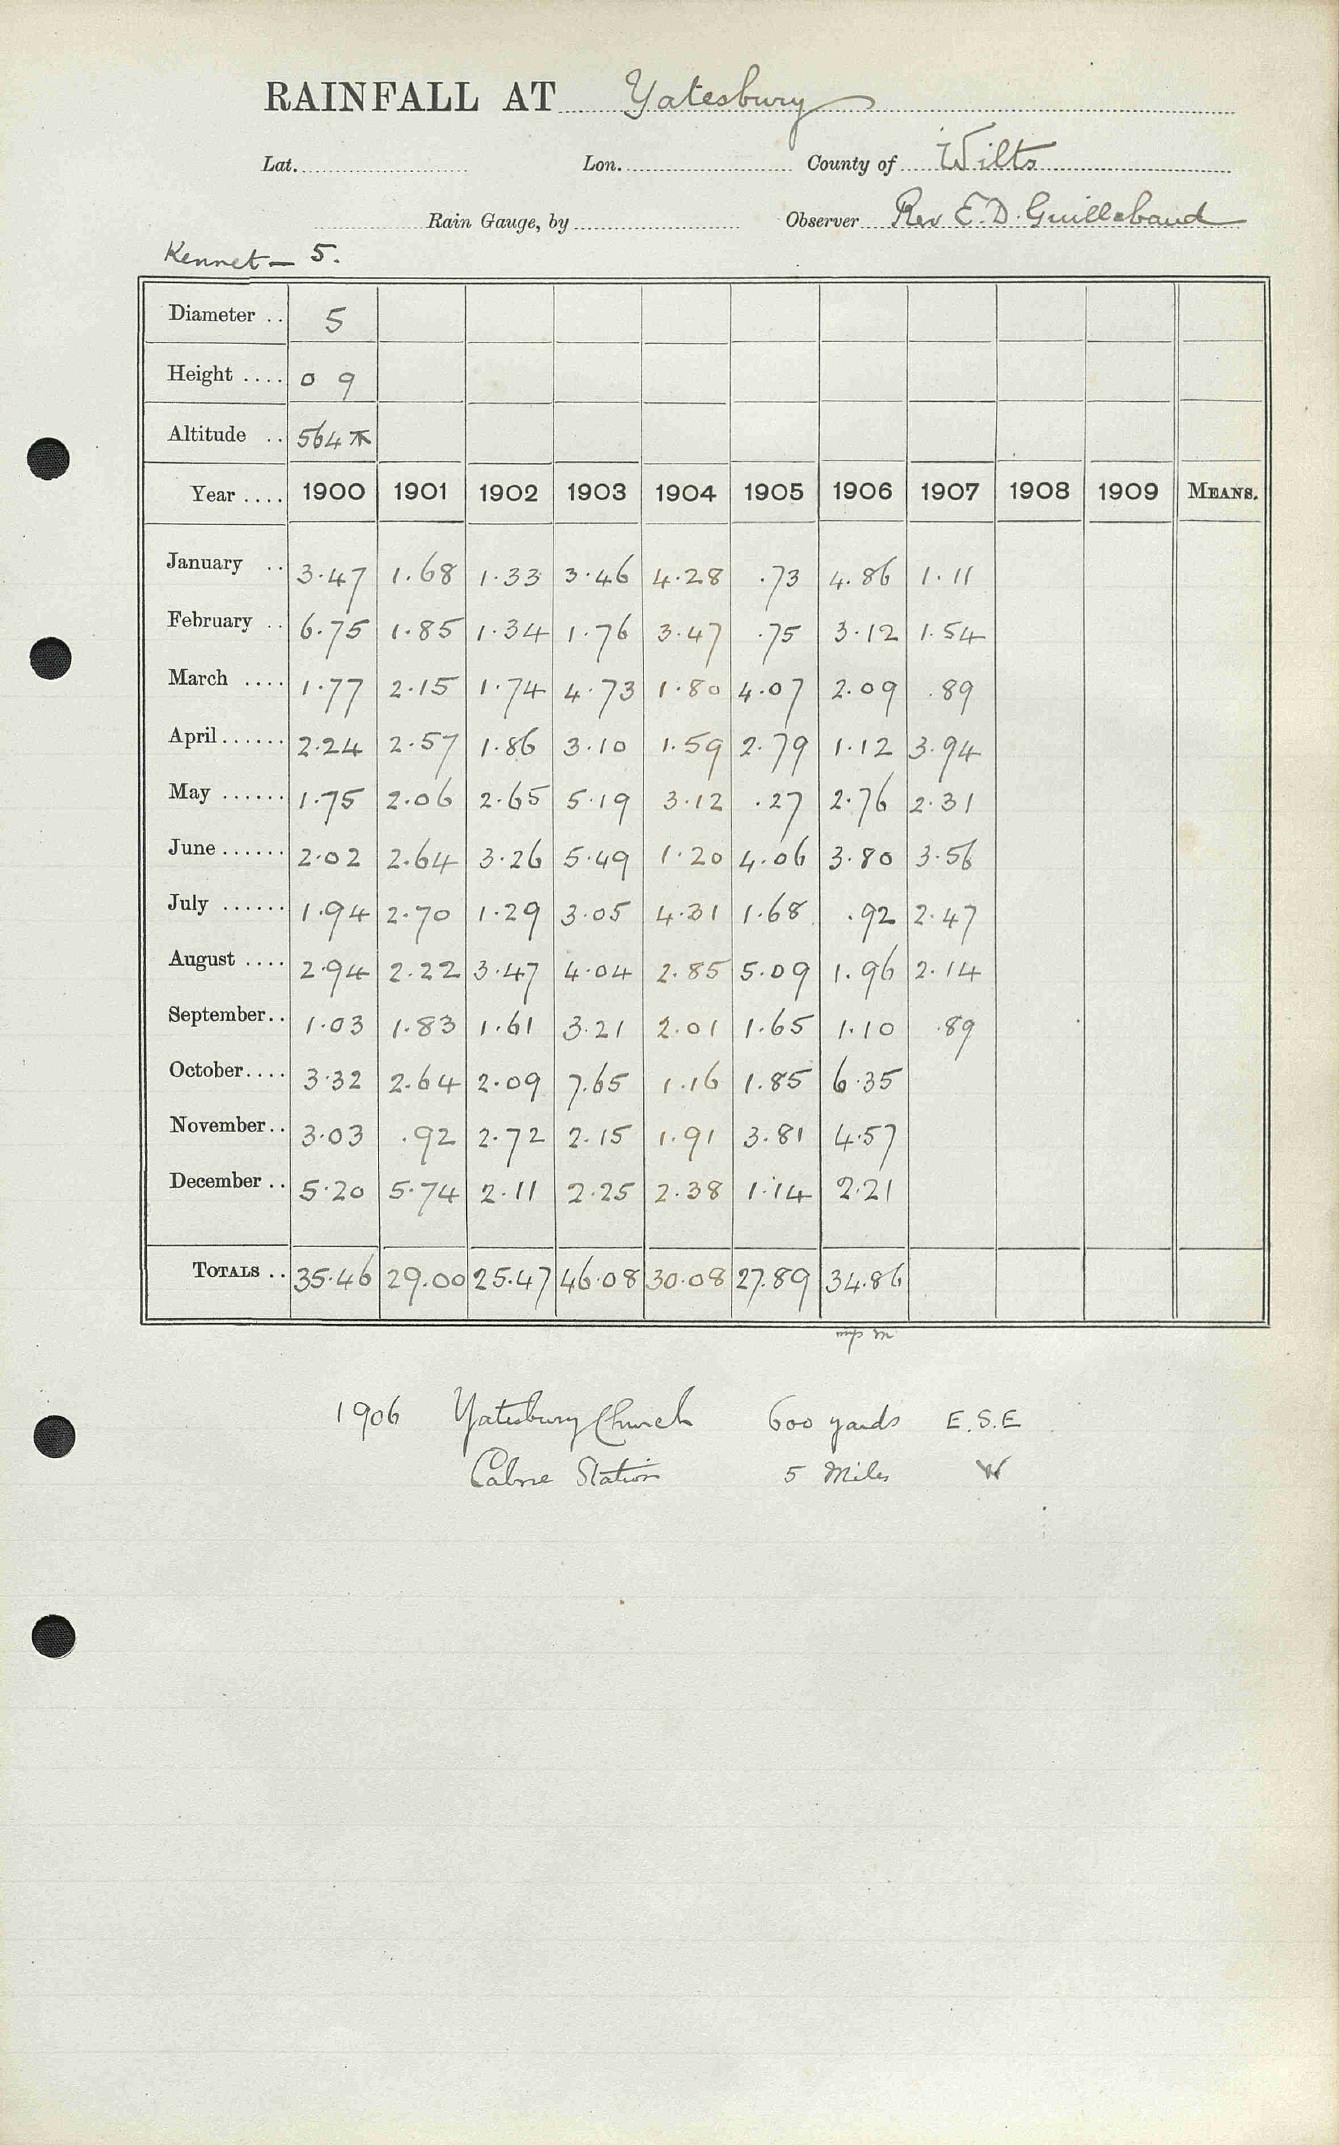 RAINFALL AT Yatesbury
Lat. Lon. County of Wilts
Rain Gauge, by Observer Rev E. D. Guillebaud
Kennet — 5.
Diameter .. 5
Height .... 0 9
Altitude .. 564
Year .... 1900 1901 1902 1903 1904 1905 1906 1907 1908 1909 MEANS.
January .. 3.47 1.68 1.33 3.46 4.28 .73 4.86 1.11
February .. 6.75 1.85 1.34 1.76 3.47 .75 3.12 1.54
March .... 1.77 2.15 1.74 4.73 1.80 4.07 2.09 .89
April...... 2.24 2.57 1.86 3.10 1.59 2.79 1.12 3.94
May ...... 1.75 2.06 2.65 5.19 3.12 .27 2.76 2.31
June ...... 2.02 2.64 3.26 5.49 1.20 4.06 3.80 3.56
July ...... 1.94 2.70 1.29 3.05 4.31 1.68 .92 2.47
August .... 2.94 2.22 3.47 4.04 2.85 5.09 1.96 2.14
September.. 1.03 1.83 1.61 3.21 2.01 1.65 1.10 .89
October.... 3.32 2.64 2.09 7.65 1.16 1.85 6.35
November.. 3.03 .92 2.72 2.15 1.91 3.81 4.57
December .. 5.20 5.74 2.11 2.25 2.38 1.14 2.21
TOTALS .. 35.46 29.00 25.47 46.08 30.08 27.89 34.86
1906 Yatesbury Church 600 yards E.S.E
Calne Station 5 Miles W